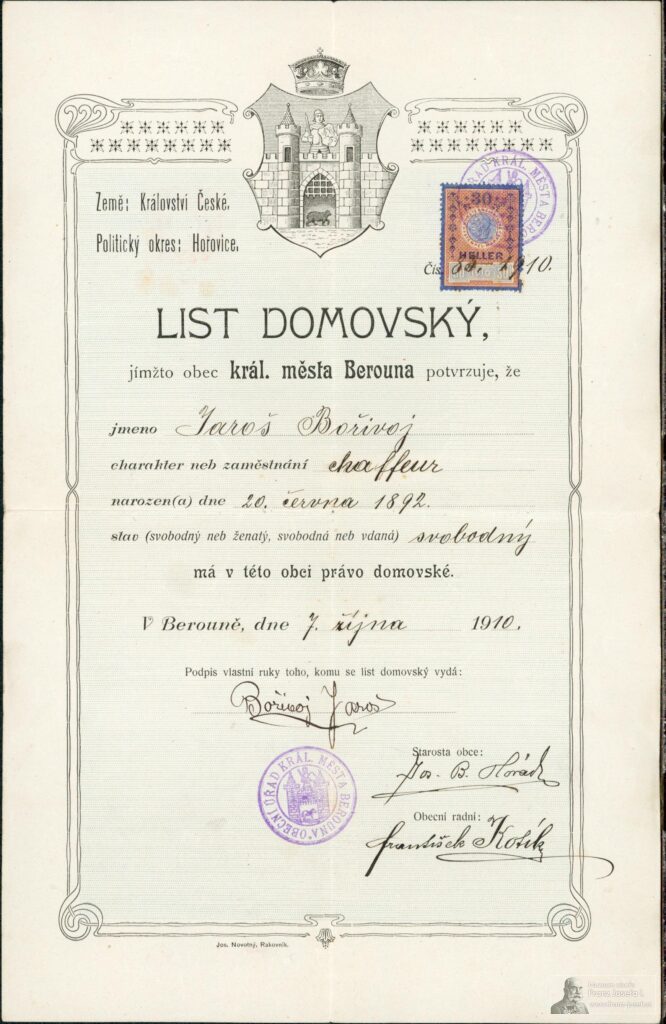 Země: Království České.
Politický okres: Hořovice.
ÚŘAD KRÁL. MĚSTA BEROUNA
30
HELLER
Čís. 1910.
LIST DOMOVSKÝ,
jímžto obec král. města Berouna potvrzuje, že
jmeno Jaroš Bořivoj
charakter neb zaměstnání chaffeur
narozen(a) dne 20. června 1892.
stav (svobodný neb ženatý, svobodná neb vdaná) svobodný
má v této obci právo domovské.
V Berouně, dne 7. října 1910.
Podpis vlastní ruky toho, komu se list domovský vydá:
Bořivoj Jaroš
OBECNÍ ÚŘAD KRÁL. MĚSTA BEROUNA
Starosta obce:
Jos. B. Horád
Obecní radní:
František Kotík
Jos. Novotný, Rakovník.
Franz Josefa I.